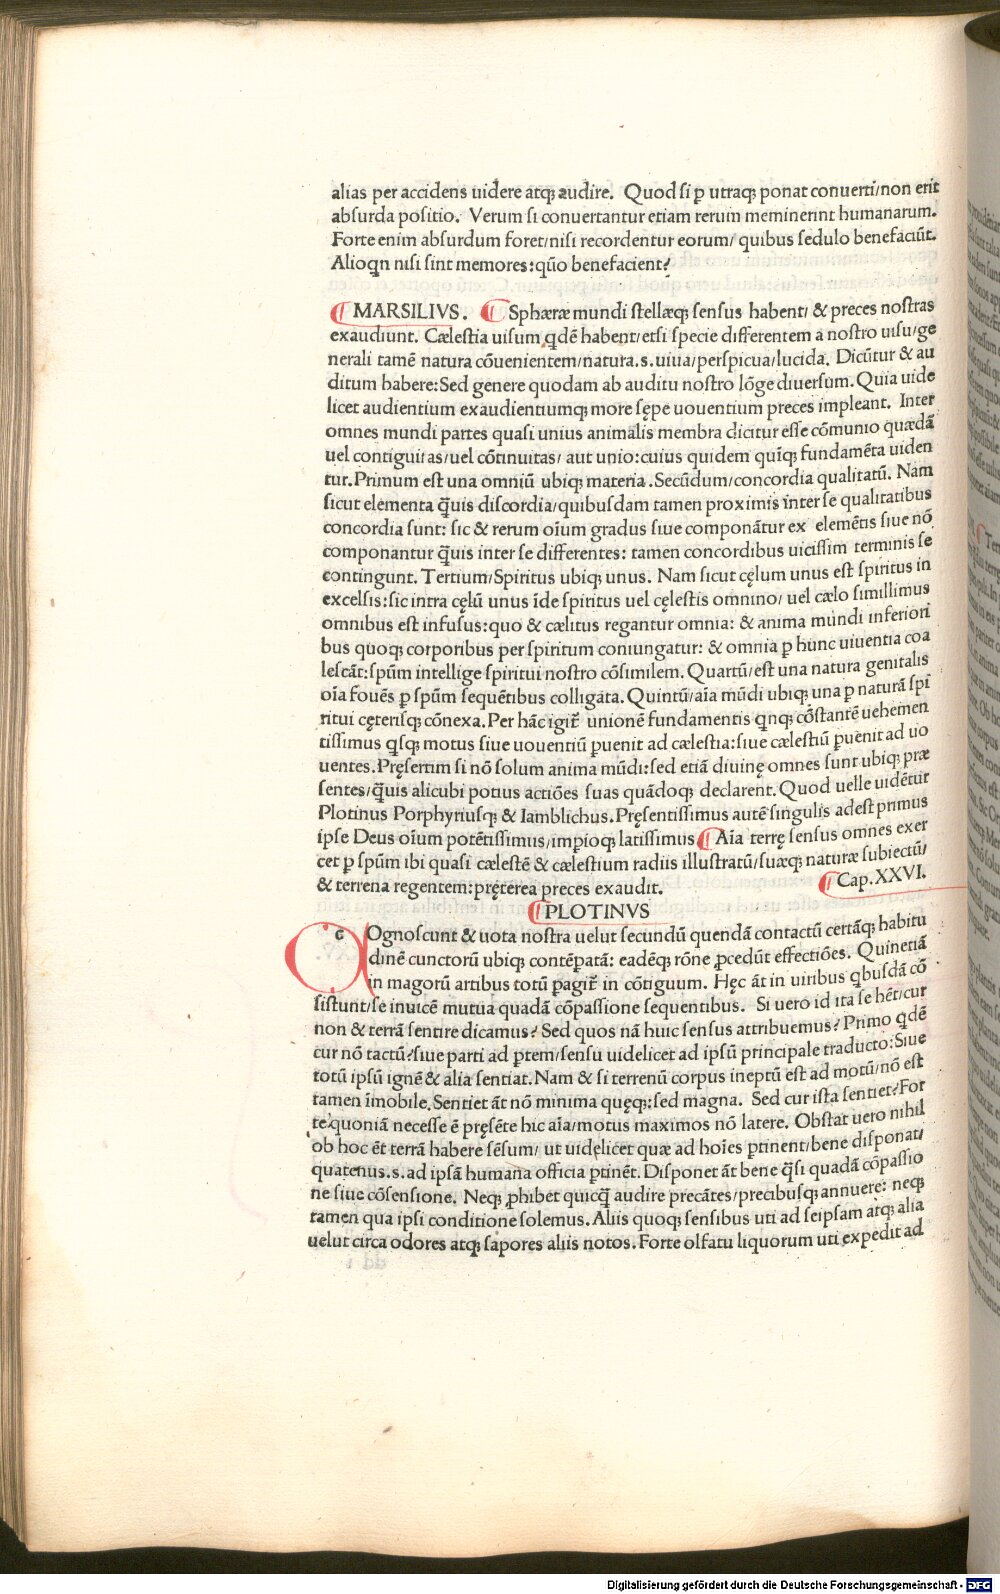 alias per accidens uidere atq; audire. Quod si ꝑ utraq; ponat conuerti/non erit
absurda positio. Verum si conuertantur etiam rerum meminerint humanarum.
Forte enim absurdum foret/nisi recordentur eorum/ quibus sedulo benefaciūt.
Alioqn̄ nisi sint memores:quō benefacient?
¶ MARSILIVS. ¶ Sphæræ mundi stellæq; sensus habent/ & preces nostras
exaudiunt. Cælestia uisum qdē habent/etsi specie differentem a nostro uisu/ge
nerali tamē natura cōuenientem/natura.s.uiua/perspicua/lucida. Dicūtur & au
ditum habere:Sed genere quodam ab auditu nostro lōge diuersum. Quia uide
licet audientium exaudientiumq; more sępe uouentium preces impleant. Inter
omnes mundi partes quasi unius animalis membra dicitur esse cōmunio quædā
uel contiguitas/uel cōtinuitas/ aut unio:cuius quidem quīq; fundamēta uiden
tur. Primum est una omniū ubiq; materia. Secūdum/concordia qualitatū. Nam
sicut elementa q̄uis discordia/quibusdam tamen proximis inter se qualitatibus
concordia sunt: sic & rerum oīum gradus siue componātur ex elemētis siue nō
componantur q̄uis inter se differentes: tamen concordibus uicissim terminis se
contingunt. Tertium/Spiritus ubiq; unus. Nam sicut cęlum unus est spiritus in
excelsis:sic intra cęlū unus īde spiritus uel cęlestis omnino/ uel cælo simillimus
omnibus est infusus:quo & cælitus regantur omnia: & anima mundi inferiori
bus quoq; corporibus per spiritum coniungatur: & omnia ꝑ hunc uiuentia coa
lescāt:spūm intellige spiritui nostro cōsimilem. Quartū/est una natura genitalis
oīa fouēs ꝑ spūm sequētibus colligata. Quintū/aīa mūdi ubiq; una ꝑ naturā spī
ritui cęterisq; cōnexa. Per hāc igit̄ unionē fundamentis qnq; cōstantē uehemen
tissimus qsq; motus siue uouentiū ꝑuenit ad cælestia:siue cælestiū ꝑuenit ad uo
uentes. Pręsertim si nō solum anima mūdi:sed etiā diuinę omnes sunt ubiq; præ
sentes/q̄uis alicubi potius actiōes suas quādoq; declarent. Quod uelle uidētur
Plotinus Porphyriusq; & Iamblichus. Pręsentissimus autē singulis adest primus
ipse Deus oīum potētissimus/impioq; latissimus ¶ Aīa terrę sensus omnes exer
cet ꝑ spūm ibi quasi cælestē & cælestium radiis illustratū/suæq; naturæ subiectū/
& terrena regentem:pręterea preces exaudit. ¶ Cap. XXVI.
¶ PLOTINVS
c Ognoscunt & uota nostra uelut secundū quendā contactū certāq; habitu
dinē cunctorū ubiq; contēpatā: eadēq; rōne ꝓcedūt effectiōes. Quinetiā
in magorū artibus totū ꝑagit̄ in cōtiguum. Hęc āt in uiribus qbusdā cō
sistunt/se inuicē mutua quadā cōpassione sequentibus. Si uero id ita se hēt/cur
non & terrā sentire dicamus? Sed quos nā huic sensus attribuemus? Primo qdē
cur nō tactū?siue parti ad ꝑtem/sensu uidelicet ad ipsū principale traducto:Siue
totū ipsū ignē & alia sentiat. Nam & si terrenū corpus ineptū est ad motū/nō est
tamen īmobile. Sentiet āt nō minima quęq;:sed magna. Sed cur ista sentiet?For
te quoniā necesse ē pręsēte hic aīa/motus maximos nō latere. Obstat uero nihil
ob hoc ēt terrā habere sēsum/ ut uidelicet quæ ad hoīes ꝑtinent/bene disponat/
quatenus.s.ad ipsā humana officia ꝑtinēt. Disponet āt bene q̄si quadā cōpassio
ne siue cōsensione. Neq; ꝓhibet quicq̄ audire precātes/precibusq; annuere: neq;
tamen qua ipsi conditione solemus. Aliis quoq; sensibus uti ad seipsam atq; alia
uelut circa odores atq; sapores aliis notos. Forte olfatu liquorum uti expedit ad
Digitalisierung gefördert durch die Deutsche Forschungsgemeinschaft - DFG